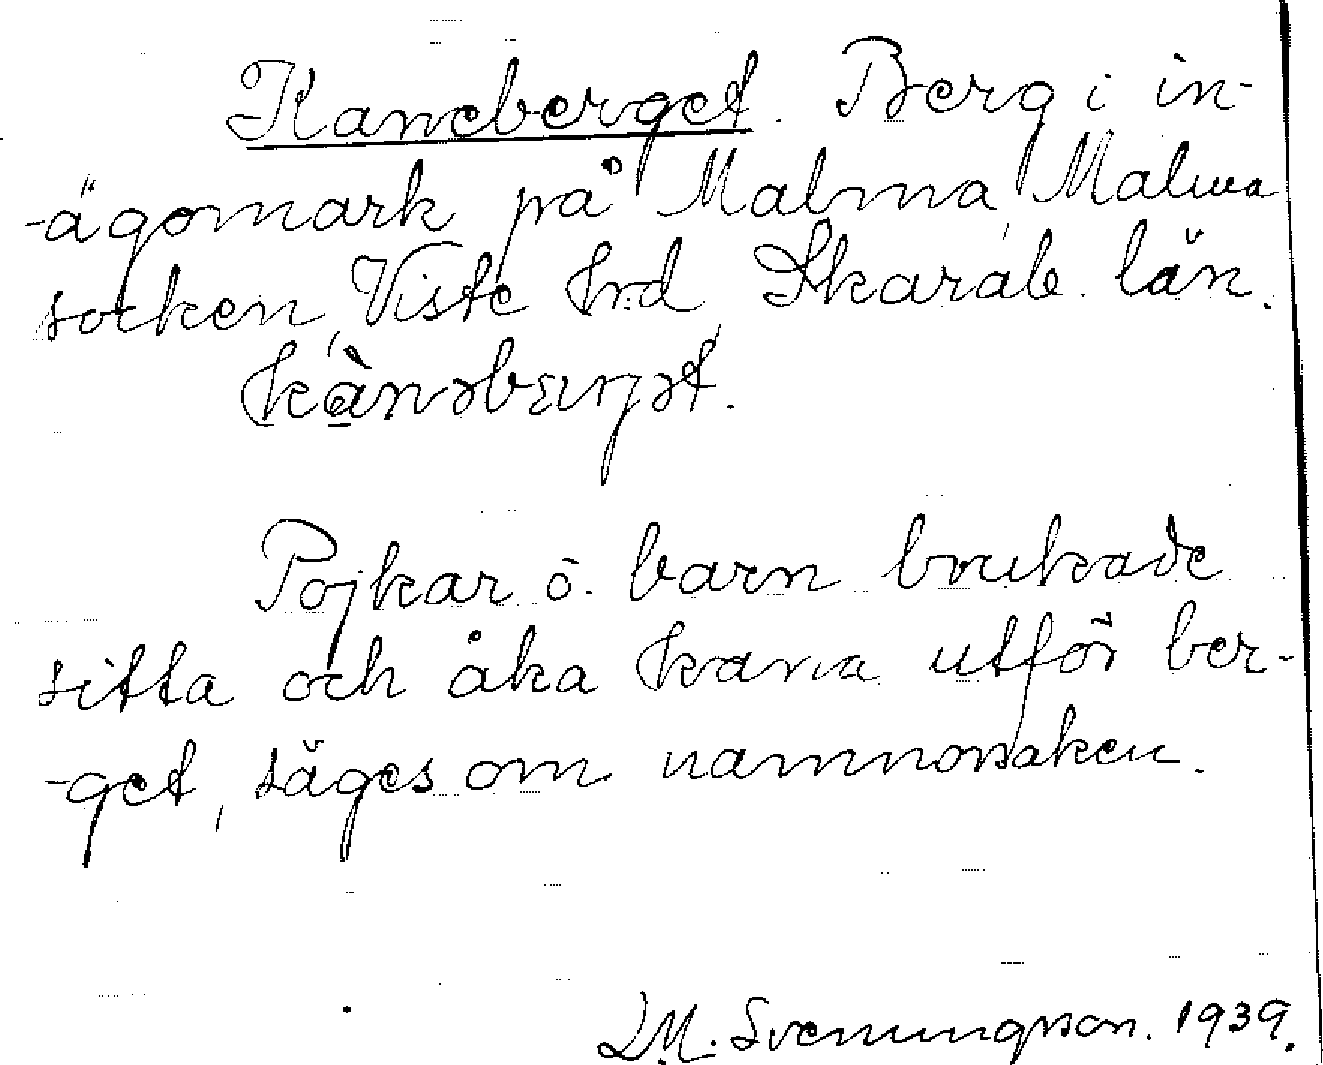 Kaneberget. Berg i in-
-ägomark på Malma, Malma
socken, Viste hrd, Skarab. län.
kànəbærjət.
Pojkar o. barn brukade
sitta och åka kana utför ber-
-get, säges om namnorsaken.
D.M. Svenungsson. 1939.